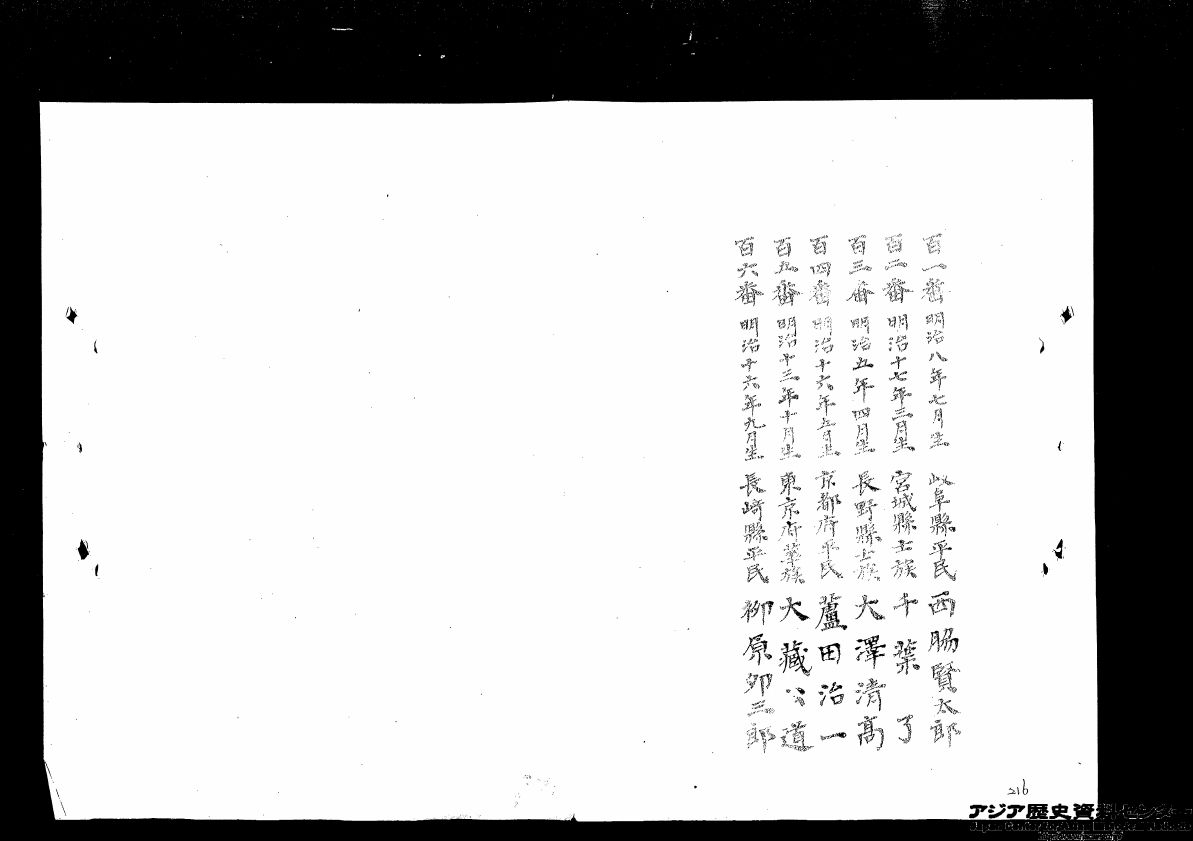 百一番 明治八年七月生 岐阜縣平民 西脇賢太郎
百二番 明治十七年三月生 宮城縣士族 千葉了
百三番 明治五年四月生 長野縣士族 大澤清高
百四番 明治十六年五月生 京都府平民 蘆田治一
百五番 明治十三年十月生 東京府華族 大藏公道
百六番 明治十六年九月生 長崎縣平民 柳原卯三郎
216
アジア歴史資料センター